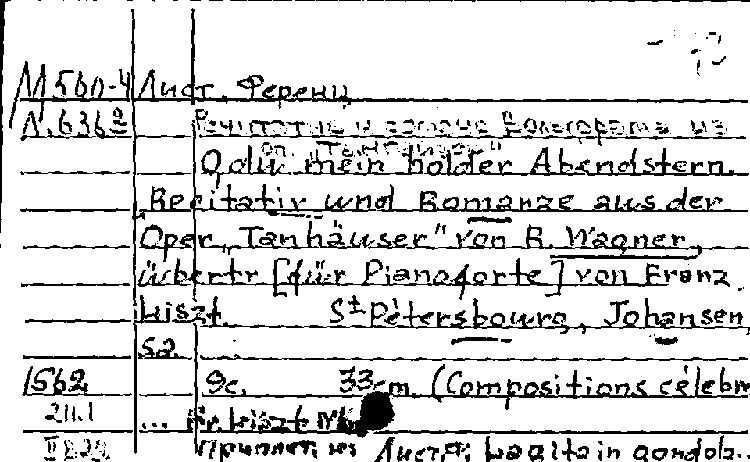 М560-4 Лист, Ференц
Л.636² Речитатив и романс Вольфрама из
оп. "Тангейзер"
O du mein holder Abendstern.
Recitativ und Romanze aus der
Oper „Tanhäuser" von R. Wagner,
übertr [für Pianoforte] von Franz
Liszt. St Pétersbourg, Johansen,
s.a.
1562 9c. 33cm. (Compositions célèbr
2111 ... Fr. Liszt №
Лист Ф.